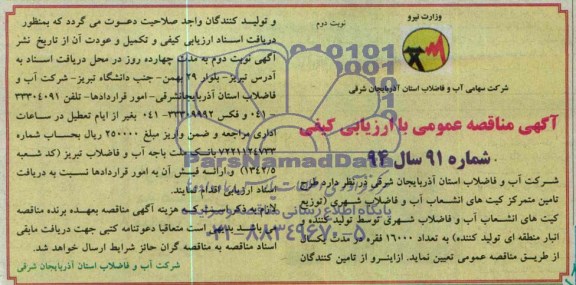 وزارت نیرو
نوبت دوم
شرکت سهامی آب و فاضلاب استان آذربایجان شرقی
آگهی مناقصه عمومی با ارزیابی کیفی
شماره ۹۱ سال ۹۴
شرکت آب و فاضلاب استان آذربایجان شرقی در نظر دارد طرح
تامین متمرکز کیت های انشعاب آب و فاضلاب شهری (توزیع
کیت های انشعاب آب و فاضلاب شهری توسط تولید کننده و
انبار منطقه ای تولید کننده) به تعداد ۱۶۰۰۰ فقره در مدت یکسال
از طریق مناقصه عمومی تعیین نماید. ازاینرو از تامین کنندگان
و تولید کنندگان واجد صلاحیت دعوت می گردد که بمنظور
دریافت اسناد ارزیابی کیفی و تکمیل و عودت آن از تاریخ نشر
آگهی نوبت دوم به مدت چهارده روز در محل دریافت اسناد به
آدرس تبریز- بلوار ۲۹ بهمن- جنب دانشگاه تبریز- شرکت آب و
فاضلاب استان آذربایجانشرقی- امور قراردادها- تلفن ۳۳۳۰۴۰۹۱
-۰۴۱ و فکس ۳۳۳۰۸۹۹۲-۰۴۱ بغیر از ایام تعطیل در ساعات
اداری مراجعه و ضمن واریز مبلغ ۲۵۰۰۰۰ ریال بحساب شماره
۷۲۲۱۱۲۴۷۳۳ بانک ملت باجه آب و فاضلاب تبریز (کد شعبه
۱۳۴۲/۵) و ارائه فیش آن به امور قراردادها نسبت به دریافت
اسناد ارزیابی اقدام نمایند.
لازم به ذکر است که هزینه آگهی مناقصه بعهده برنده مناقصه
می باشد بدیهی است متعاقبا دعوتنامه کتبی جهت دریافت مابقی
اسناد مناقصه به مناقصه گران حائز شرایط ارسال خواهد شد.
شرکت آب و فاضلاب استان آذربایجان شرقی
ParsNamadData
پایگاه اطلاع رسانی مناقصه
۰۲۱-۸۸۳۴۹۶۷۰-۵